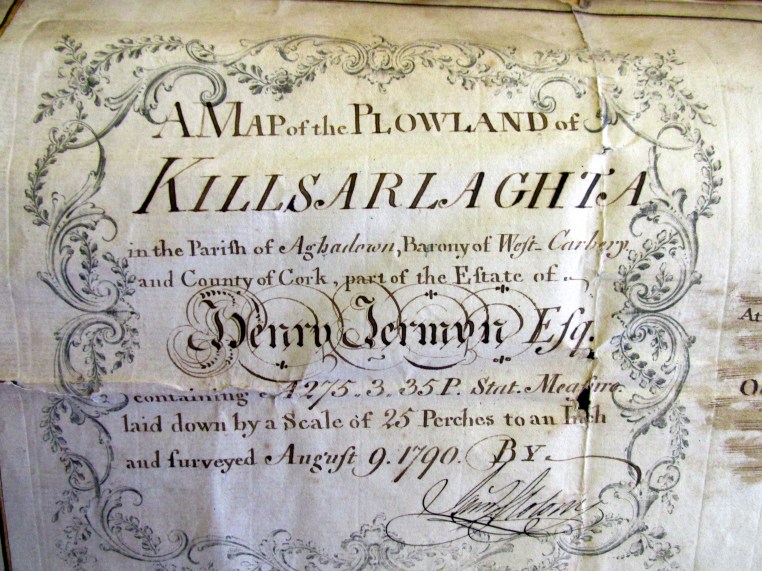 A MAP of the PLOWLAND of
KILLSARLAGHTA
in the Pariſh of Aghadown, Barony of Weſt-Carbery
and County of Cork, part of the Eſtate of
Henry Jermyn Eſq.
containing A 275.3.35P. Stat. Meaſure
laid down by a Scale of 25 Perches to an Inch
and ſurveyed Auguſt 9. 1790. BY
At